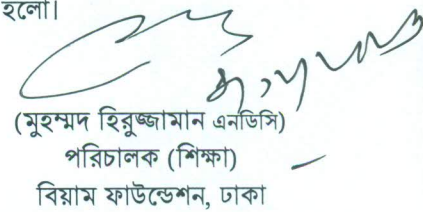 হলো।
(মুহম্মদ হিরুজ্জামান এনডিসি)
পরিচালক (শিক্ষা)
বিয়াম ফাউন্ডেশন, ঢাকা